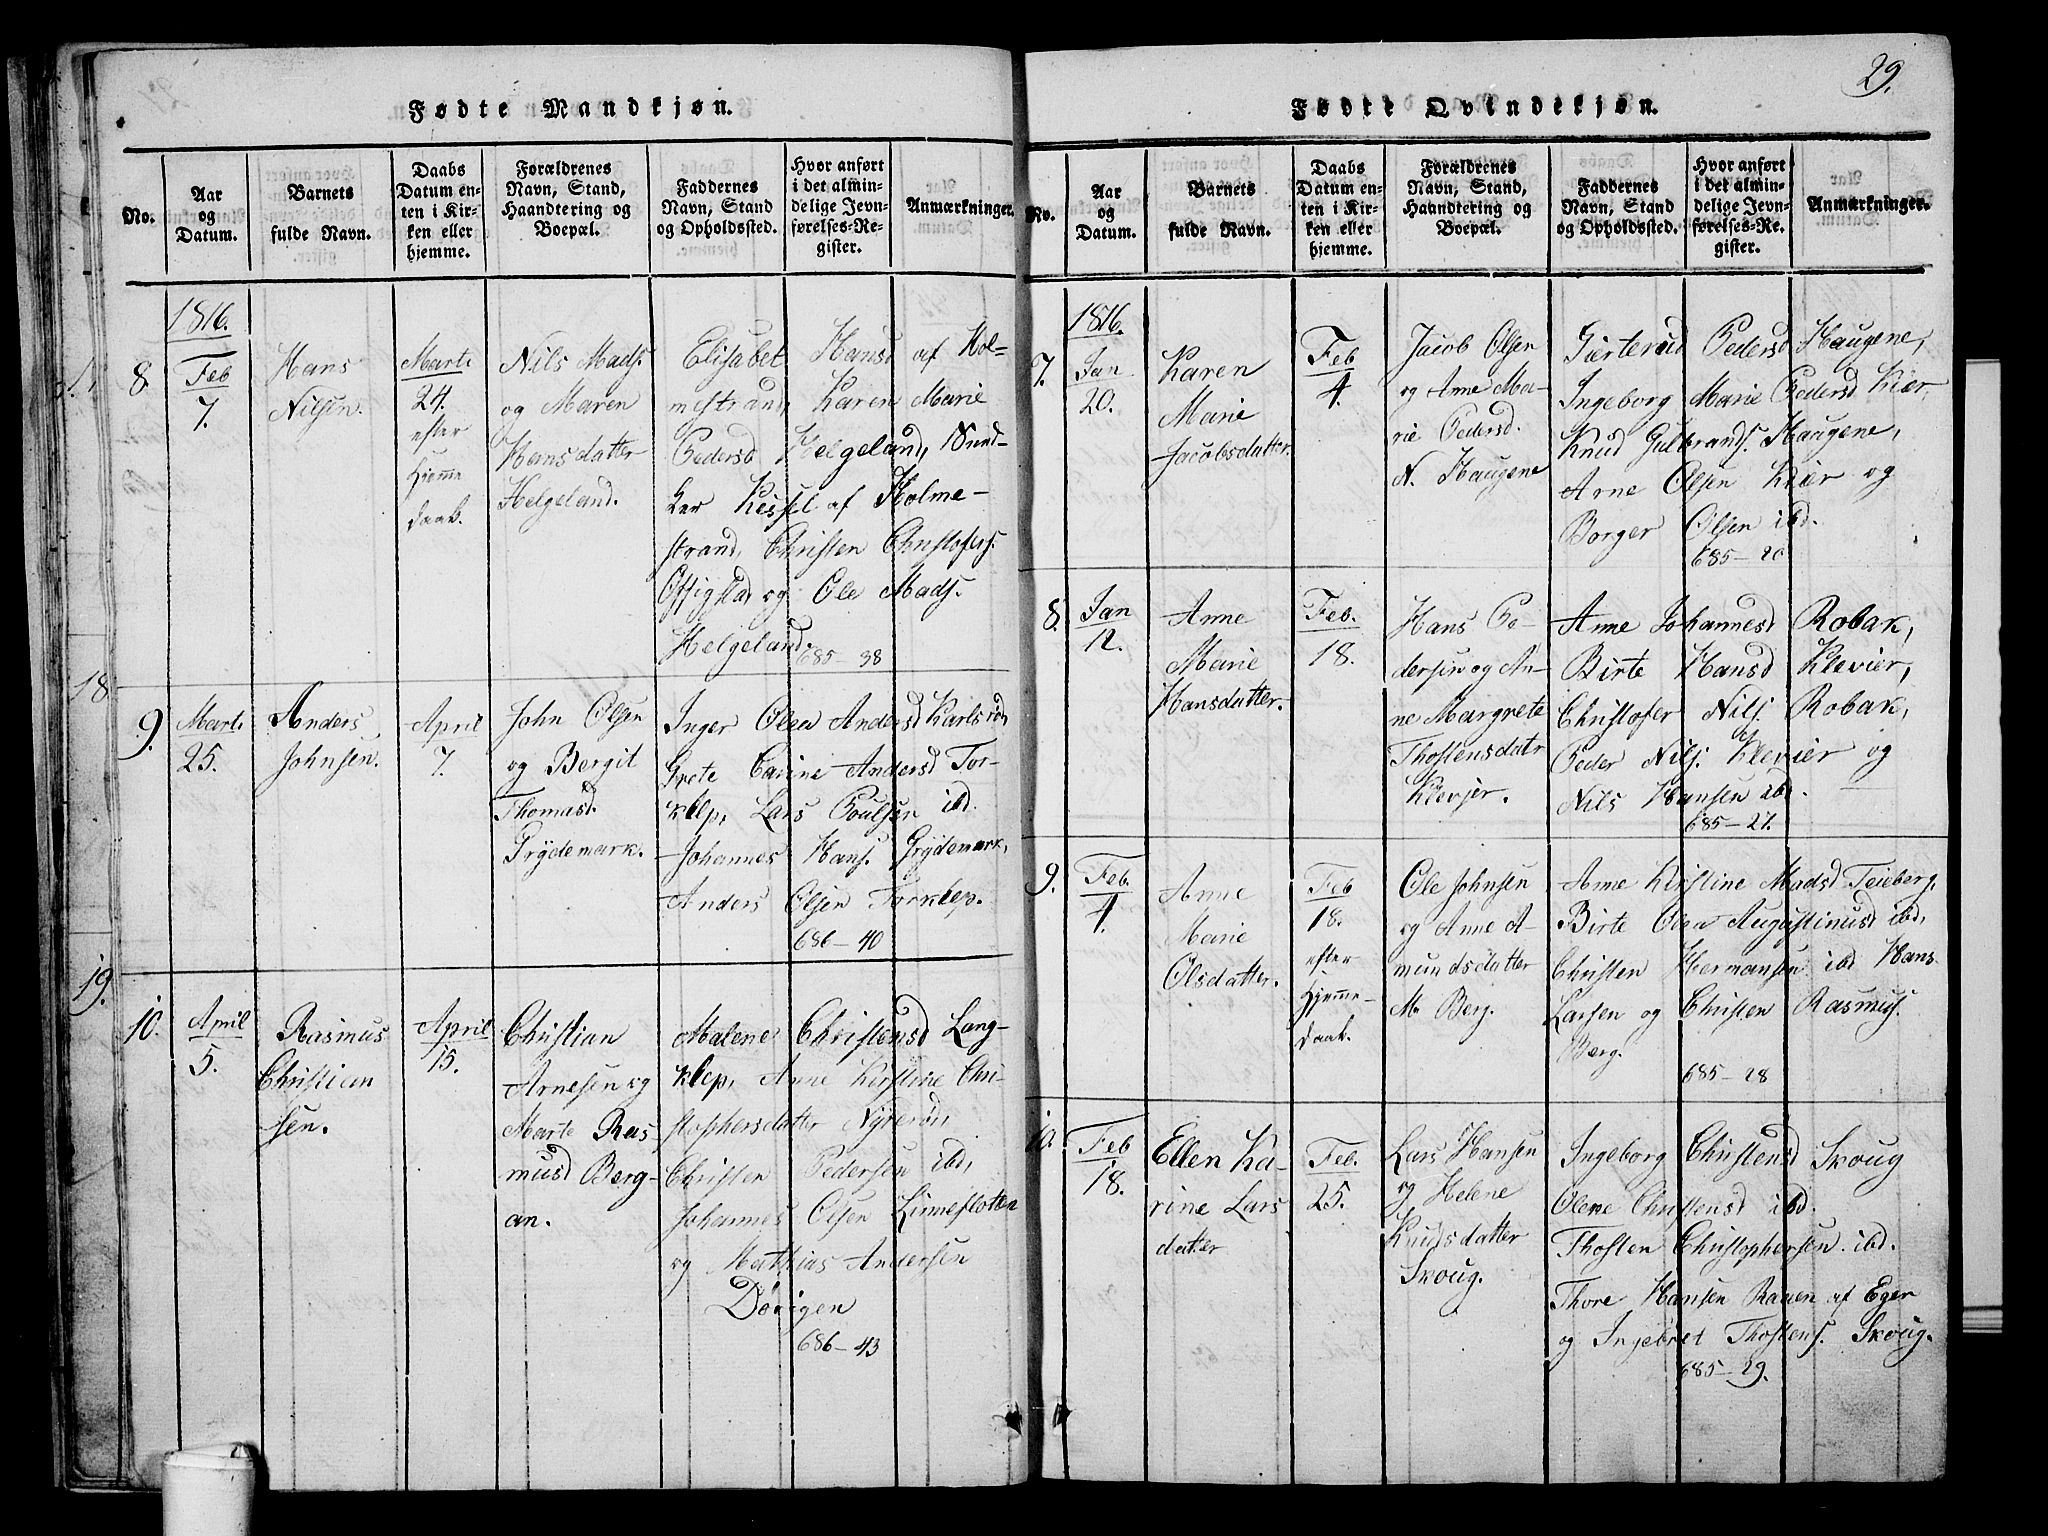 29.
Fødte Mandkjøn.
No.
Aar
og
Datum.
Barnets
fulde Navn.
Daabs
Datum en-
ten i Kir-
ken eller
hjemme.
Forældrenes
Navn, Stand,
Haandtering og
Boepæl.
Faddernes
Navn, Stand
og Opholdssted.
Hvor anført
i det almin-
delige Jevn-
førelses-Re-
gister.
Anmærkninger.
1816.
8
Feb
7.
Hans
Nilsen.
Marti
24.
efter
Hjemme
daab.
Nils Mads.
og Maren
Hansdatter
Helgeland.
Elisabet Hansd af Hol=
mestrand, Karen Marie
Pedersd Helgeland,
Kessel af Holme-
strand, Christen Christofers.
og Ole Mads.
Helgeland.
685-38
9.
Marti
25.
Anders
Johnsen.
April
7.
John Olsen
og Bergit
Thomasd.
Grydemark.
Inger Olea Andersd Karlsrød,
Grete Carine Andersd Tor-
klep, Lars Poulsen ibd.
Johannes Hans. Grydemark,
Anders Olsen Torklep.
686-40
10.
April
5.
Rasmus
Christian
sen.
April
15.
Christian
Arnesen og
Marte Ras-
musd Berg-
an.
Malene Christensd Lang-
klep, Anne Kirstine Chri-
stophersdatter Nyrerød,
Christen Pedersen ibd,
Johannes Olsen Linneflotten
og Mathias Andersen
Dørigen
686-43
18
19.
Fødte Qvindekjøn.
No.
Aar
og
Datum.
Barnets
fulde Navn.
Daabs
Datum en-
ten i Kir-
ken eller
hjemme.
Forældrenes
Navn, Stand,
Haandtering og
Boepæl.
Faddernes
Navn, Stand
og Opholdssted.
Hvor anført
i det almin-
delige Jevn-
førelses-Re-
gister.
Anmærkninger.
1816.
7.
Jan
20.
Karen
Marie
Jacobsdatter.
Feb
4.
Jacob Olsen
og Anne Ma-
rie Pedersd.
N. Haugene
Pedersd Haugene,
Ingeborg Marie Pedersd Kiær,
Knud Gulbrands. Haugene,
Arne Olsen Kiær og
Borger Olsen ibd.
685-20
8.
Jan
12.
Anne
Marie
Hansdatter.
Feb.
18.
Hans Pe-
dersen og An-
ne Margrete
Thostensdatr
Klevjer.
Anne Johannesd Robak,
Birte Hansd Klevier,
Christofer Nils. Robak,
Peder Nils. Klevier og
Nils Hansen ibd.
685-27.
9.
Feb.
4.
Anne
Marie
Olsdatter.
Feb
18.
efter
Hjemme-
daab.
Ole Johnsen
og Anne A-
mundsdatter
M. Berg.
Anne Kirstine Madsd Teieberg,
Birte Olea Augustinusd ibd,
Christen Hermansen ibd Hans
Larsen og Christen Rasmus.
Berg.
685-28
10.
Feb
18.
Ellen Ka-
rine Lars
datter
Feb.
25.
Lars Hansen
og Helene
Knudsdatter
Skoug.
Ingeborg Christensd Skoug
Olene Christensd ibd.
Thosten Christophersen ibd.
Thore Hansen Raaen af Eger
og Ingebret Thostens. Skoug.
685-29.